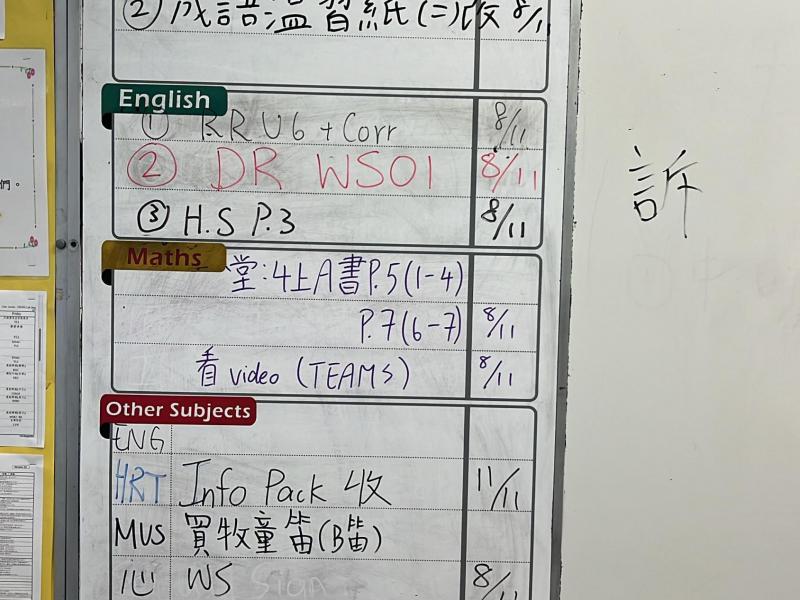 ② 成語溫習紙(二)改 8/11
English
① RR U6 + Corr 8/11
② DR WS01 8/11
③ H.S P.3 8/11
Maths
堂:4上A書P.5(1-4)
P.7(6-7) 8/11
看 video (TEAMS) 8/11
Other Subjects
ENG
HRT Info Pack 收 11/11
MUS 買牧童笛(B笛)
心 WS Sign 8/11
訴
們。